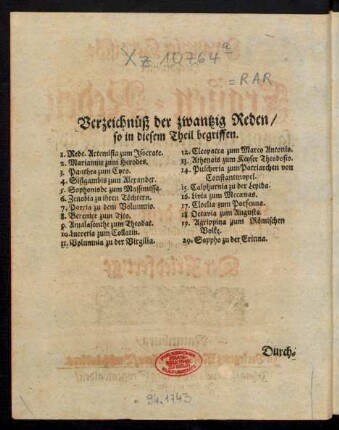 Xz 10764ª
=RAR
Verzeichnüß der zwantzig Reden/
so in diesem Theil begriffen.
1. Rede. Artemisia zum Isocrate.
2. Mariamne zum Herodes.
3. Panthea zum Cyro.
4. Sisigambis zum Alexander.
5. Sophonisbe zum Massinissa.
6. Zenobia zu ihren Töchtern.
7. Porcia zu dem Volumnio.
8. Berenice zum Tito.
9. Amalasonthe zum Theodat.
10. Lucretia zum Collatin.
11. Volumnia zu der Virgilia.
12. Cleopatra zum Marco Antonio.
13. Athenais zum Keyser Theodosio.
14. Pulcheria zum Patriarchen von
Constantinopel.
15. Calphurnia zu der Lepida.
16. Livia zum Mecænas.
17. Cloelia zum Porsenna.
18. Octavia zum Augusto.
19. Agrippina zum Römischen
Volke.
20. Sappho zu der Erinna.
Durch-
94.1743